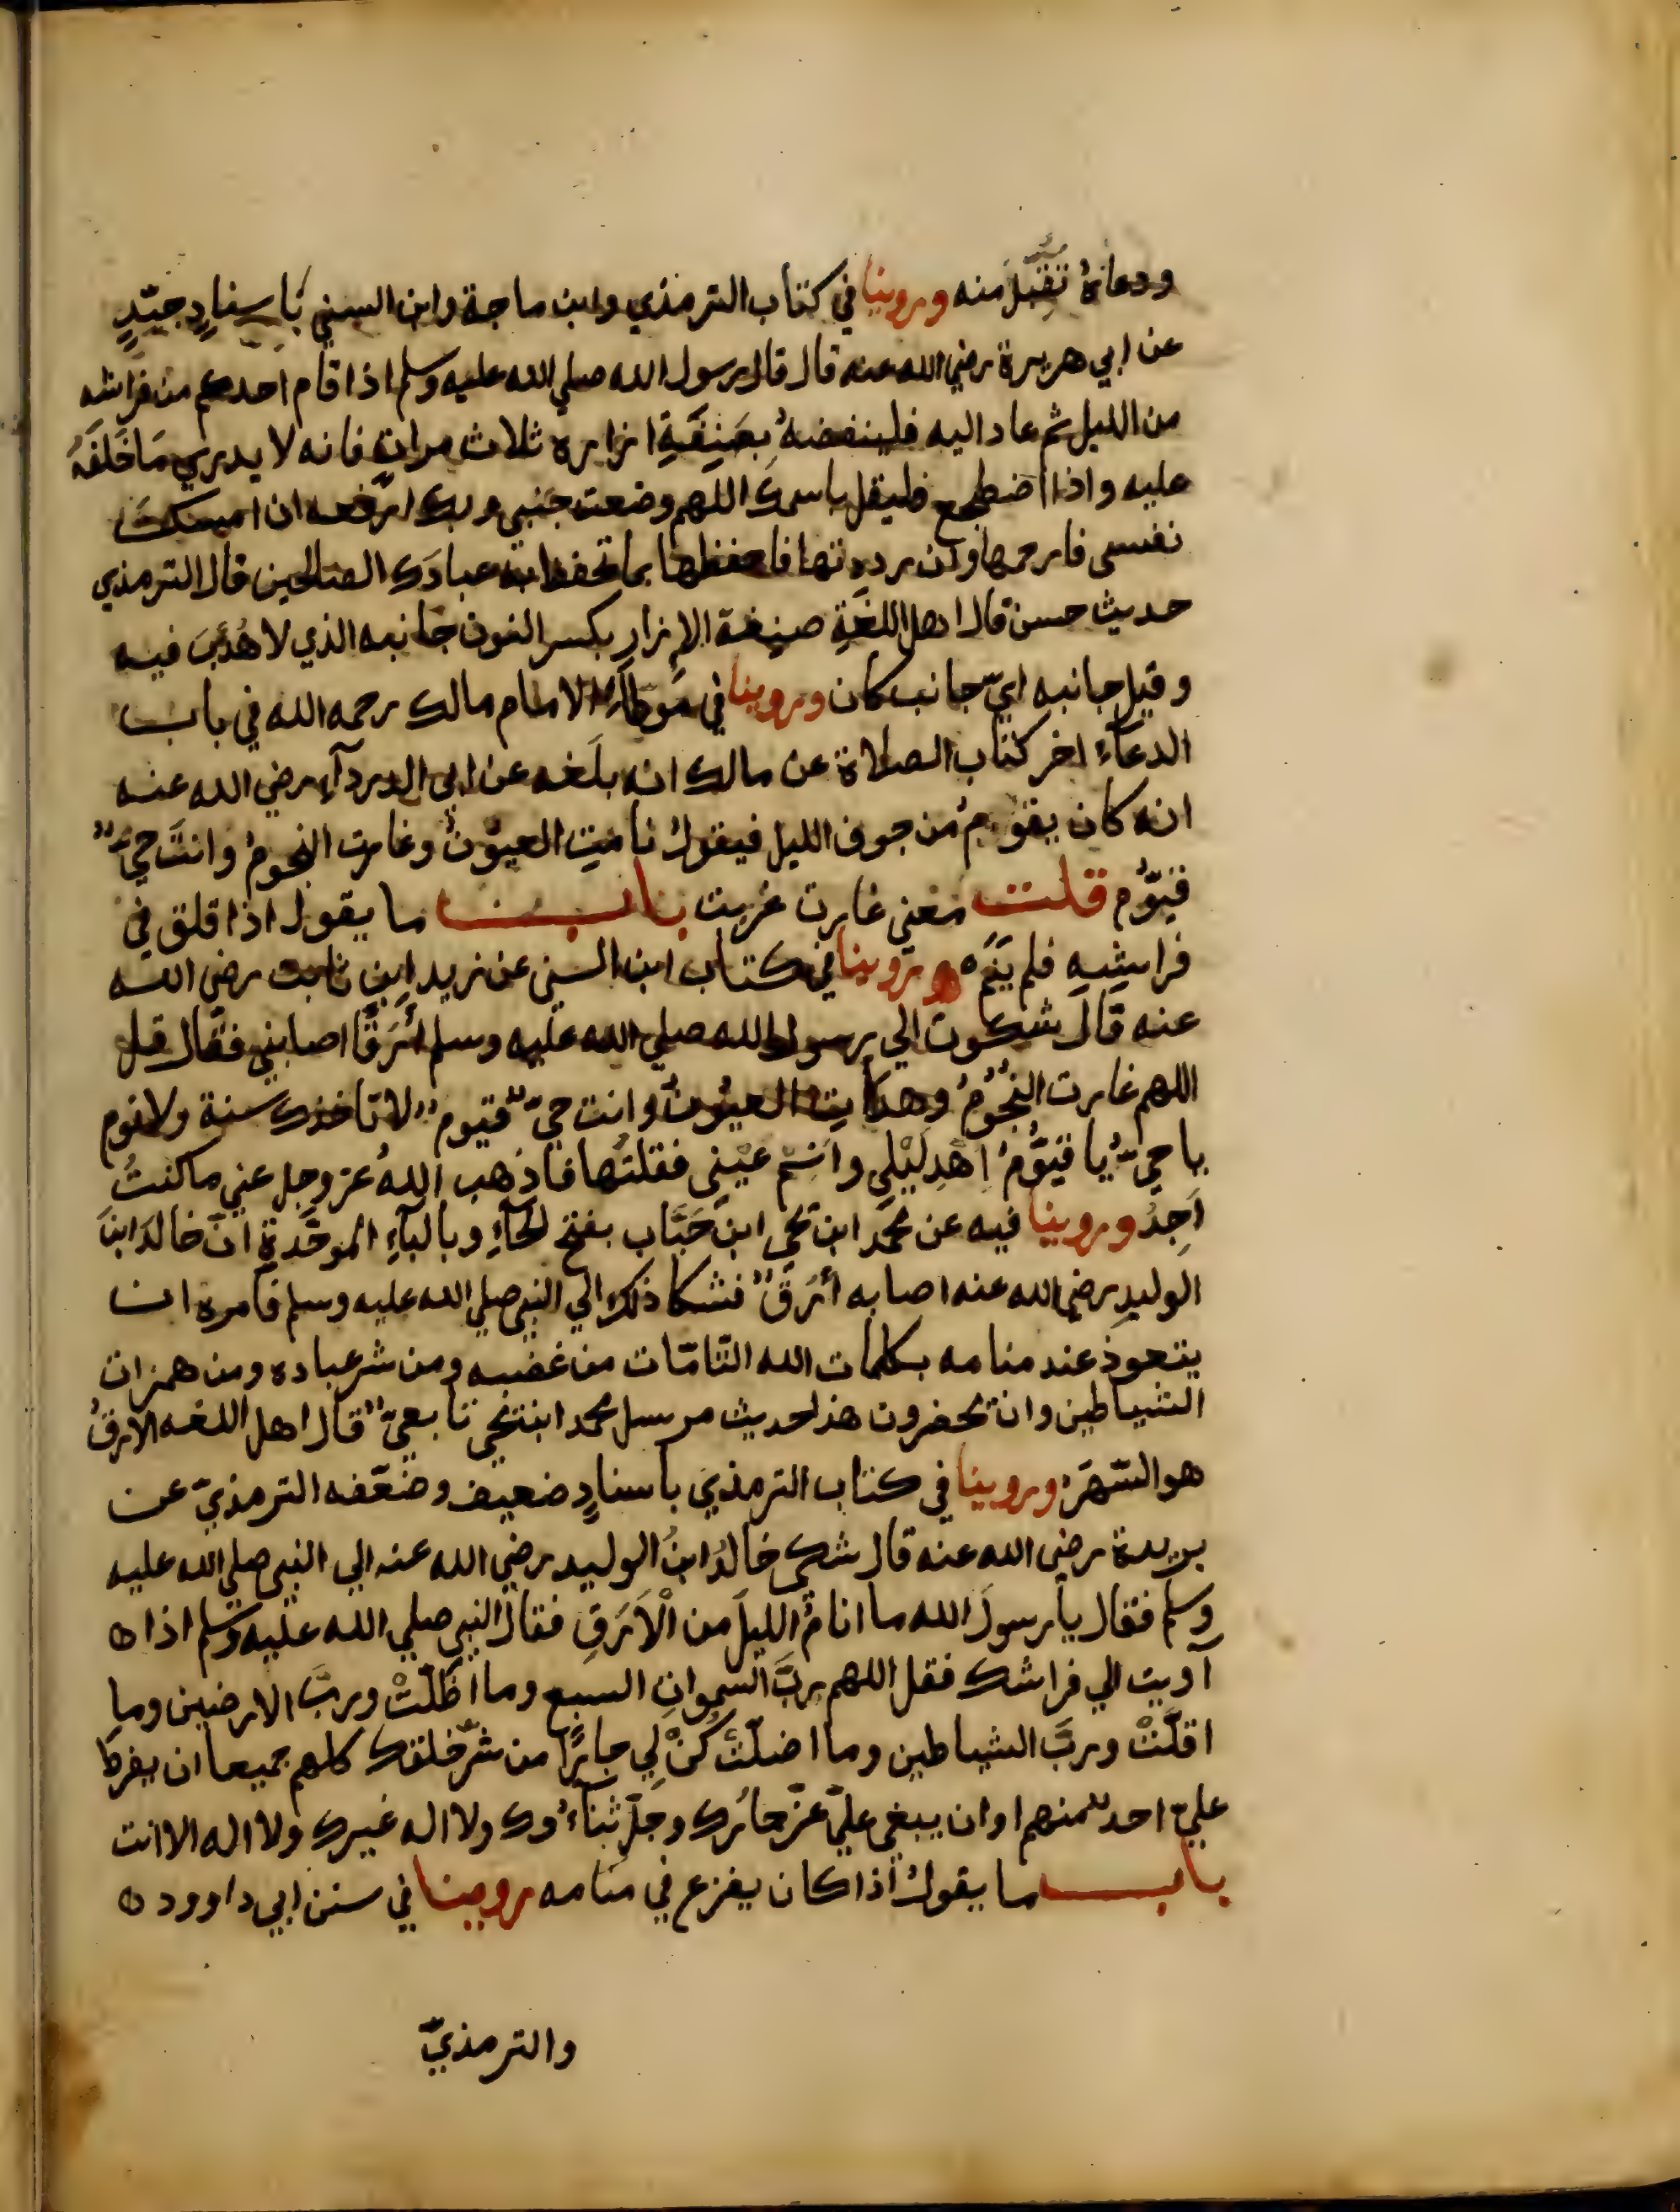 ودعاهُ تقبل منه وروينا في كتاب الترمذي وابن ماجة وابن السني باسنادٍ جيّدٍ
عن ابي هريرة رضي الله عنه قال قال رسول الله صلي الله عليه وسلم اذا قام احدكم من فراشه
من الليل ثم عاد اليه فلينفضهُ بِصَنِفَةِ ازاره ثلاث مرات فانه لا يدري مَا خَلَفَهُ
عليه واذا اضطجع فليقل باسمك اللهم وضعت جنبي وبك ارفعه ان امسكتَ
نفسي فارحمها وان رددتها فاحفظها بما تحفظ به عبادَك الصالحين قال الترمذي
حديث حسن قال اهل اللغَةِ صنِفة الإزارِ بكسر النون جانبه الذي لا هُدْبَ فيه
وقيل جانبه ايّ جانب كان وروينا في موطأ الامام مالك رحمه الله في باب
الدعآء اخر كتاب الصلاة عن مالك انه بلَغه عن ابي الدردآء رضي الله عنه
انه كان يقومُ من جوف الليل فيقولُ نامتِ العيونُ وغارت النجومُ وانتَ حيٌّ
قيّوُم قلت معني غارت غربت باب ما يقول اذا قلق في
فراشِهِ فلم ينَم وروينا في كتاب ابن السني عن زيد ابن ثابت رضي الله
عنه قالَ شكوت الي رسول الله صلي الله عليه وسلم أَرَقًا اصابني فقال قل
اللهم غارت النُجُوُمُ وهدأتِ العيُوُنُ وانت حيّ قيوم لا تاخذك سنة ولا نوم
يا حيّ يا قيّوُمُ اهْدِ لَيْلي وانِمْ عيْني فقلتُها فاذهب اللهُ عز وجل عني ما كنتُ
اَجِدُ وروينا فيه عن محمد ابن يحي ابن حَبَّاب بفتح الحآءِ وبالبآءِ الموحَّدةِ انّ خالدَ ابنَ
الوليدِ رضي الله عنه اصابه أرَقٌ فشكا ذلك الي النبي صلي الله عليه وسلم فامره ان
يتعوذ عند منامه بكلمات الله التّامّات من غضبه ومن شر عباده ومن همزات
الشياطين وان يحضرون هذا حديث مرسل محمد ابن يحي تابعيّ قال اهل اللغه الارقُ
هو السَّهَرُ وروينا في كتاب الترمذي باسنادٍ ضعيف وضعّفه الترمذيّ عن
بريدة رضي الله عنه قال شكي خالدُ ابنُ الوليد رضي الله عنه الي النبي صلي الله عليه
وسلم فقال يا رسولَ الله ما انامُ الليلَ من الْاَرَقِ فقال النبي صلي الله عليه وسلم اذا ه
آويت الي فراشك فقل اللهم ربَّ السمواتِ السبع وما اظَلّتْ وربَّ الارضين وما
اقلّتْ وربَّ الشياطين وما اضلّتْ كُنْ لِي جارًا من شرّ خلقك كلهم جميعا ان يفرطَ
عليّ احد منهم او ان يبغي عليّ عزّ جارُك وجلّ ثنآءُوك ولا اله غيرك ولا اله الا انت
باب ما يقولُ اذا كان يفزع في منامه روينا في سنن ابي داوود ه
والترمذيّ